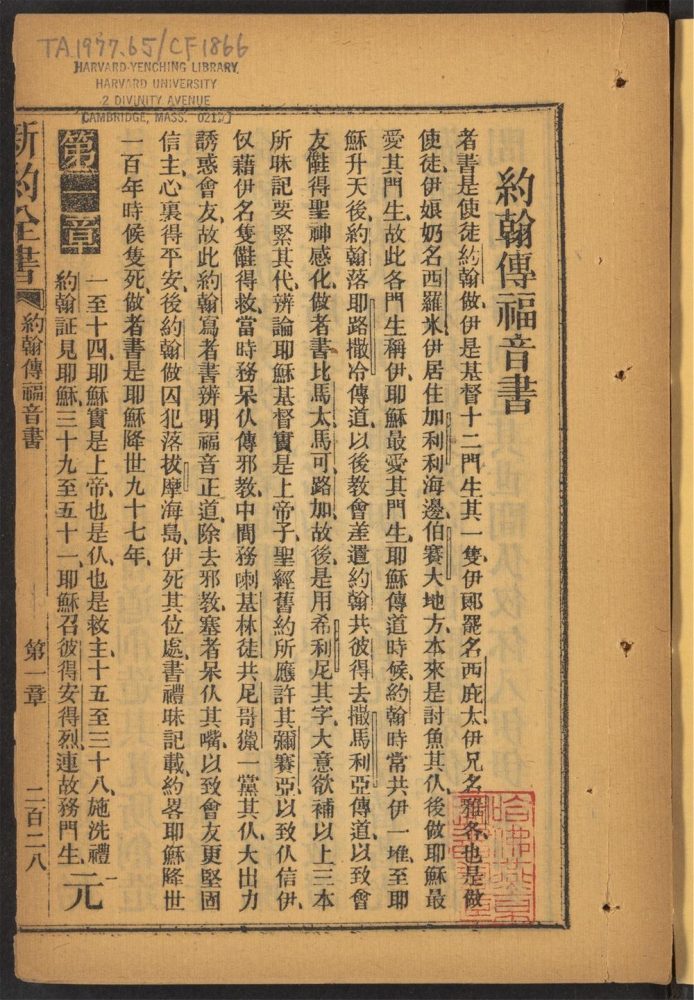 TA 1977.65/CF1866
HARVARD-YENCHING LIBRARY
HARVARD UNIVERSITY
2 DIVINITY AVENUE
CAMBRIDGE, MASS. 02138
約翰傳福音書
者書是使徒約翰做伊是基督十二門生其一隻伊郞罷名西庇太伊兄名雅各也是做
使徒伊娘奶名西羅米伊居住加利利海邊伯賽大地方本來是討魚其仈後做耶穌最
愛其門生故此各門生稱伊耶穌最愛其門生耶穌傳道時候約翰時常共伊一堆至耶
穌升天後約翰落耶路撒冷傳道以後教會差遣約翰共彼得去撒馬利亞傳道以致會
友儺得聖神感化做者書比馬太馬可路加故後是用希利尼其字大意欲補以上三本
所昧記要緊其代辨論耶穌基督實是上帝子聖經舊約所應許其彌賽亞以致仈信伊
仅藉伊名隻儺得救當時務呆仈傳邪教中間務喇基林徒共尼哥臘一黨其仈大出力
誘惑會友故此約翰寫者書辨明福音正道除去邪教塞者呆仈其嘴以致會友更堅固
信主心裏得平安後約翰做囚犯落拔摩海島伊死其位處書禮昧記載約畧耶穌降世
一百年時候隻死做者書是耶穌降世九十七年
第一章
一至十四耶穌實是上帝也是仈也是救主十五至三十八施洗禮
約翰証見耶穌三十九至五十一耶穌召彼得安得烈連故務門生
元
新約全書
約翰傳福音書
第一章
二百二八